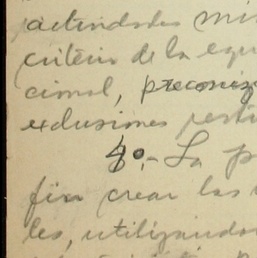 actividades
criterio de la equi
cional, preconiz
exclusiones
4º.- La p
fin crear las
les, utilizando